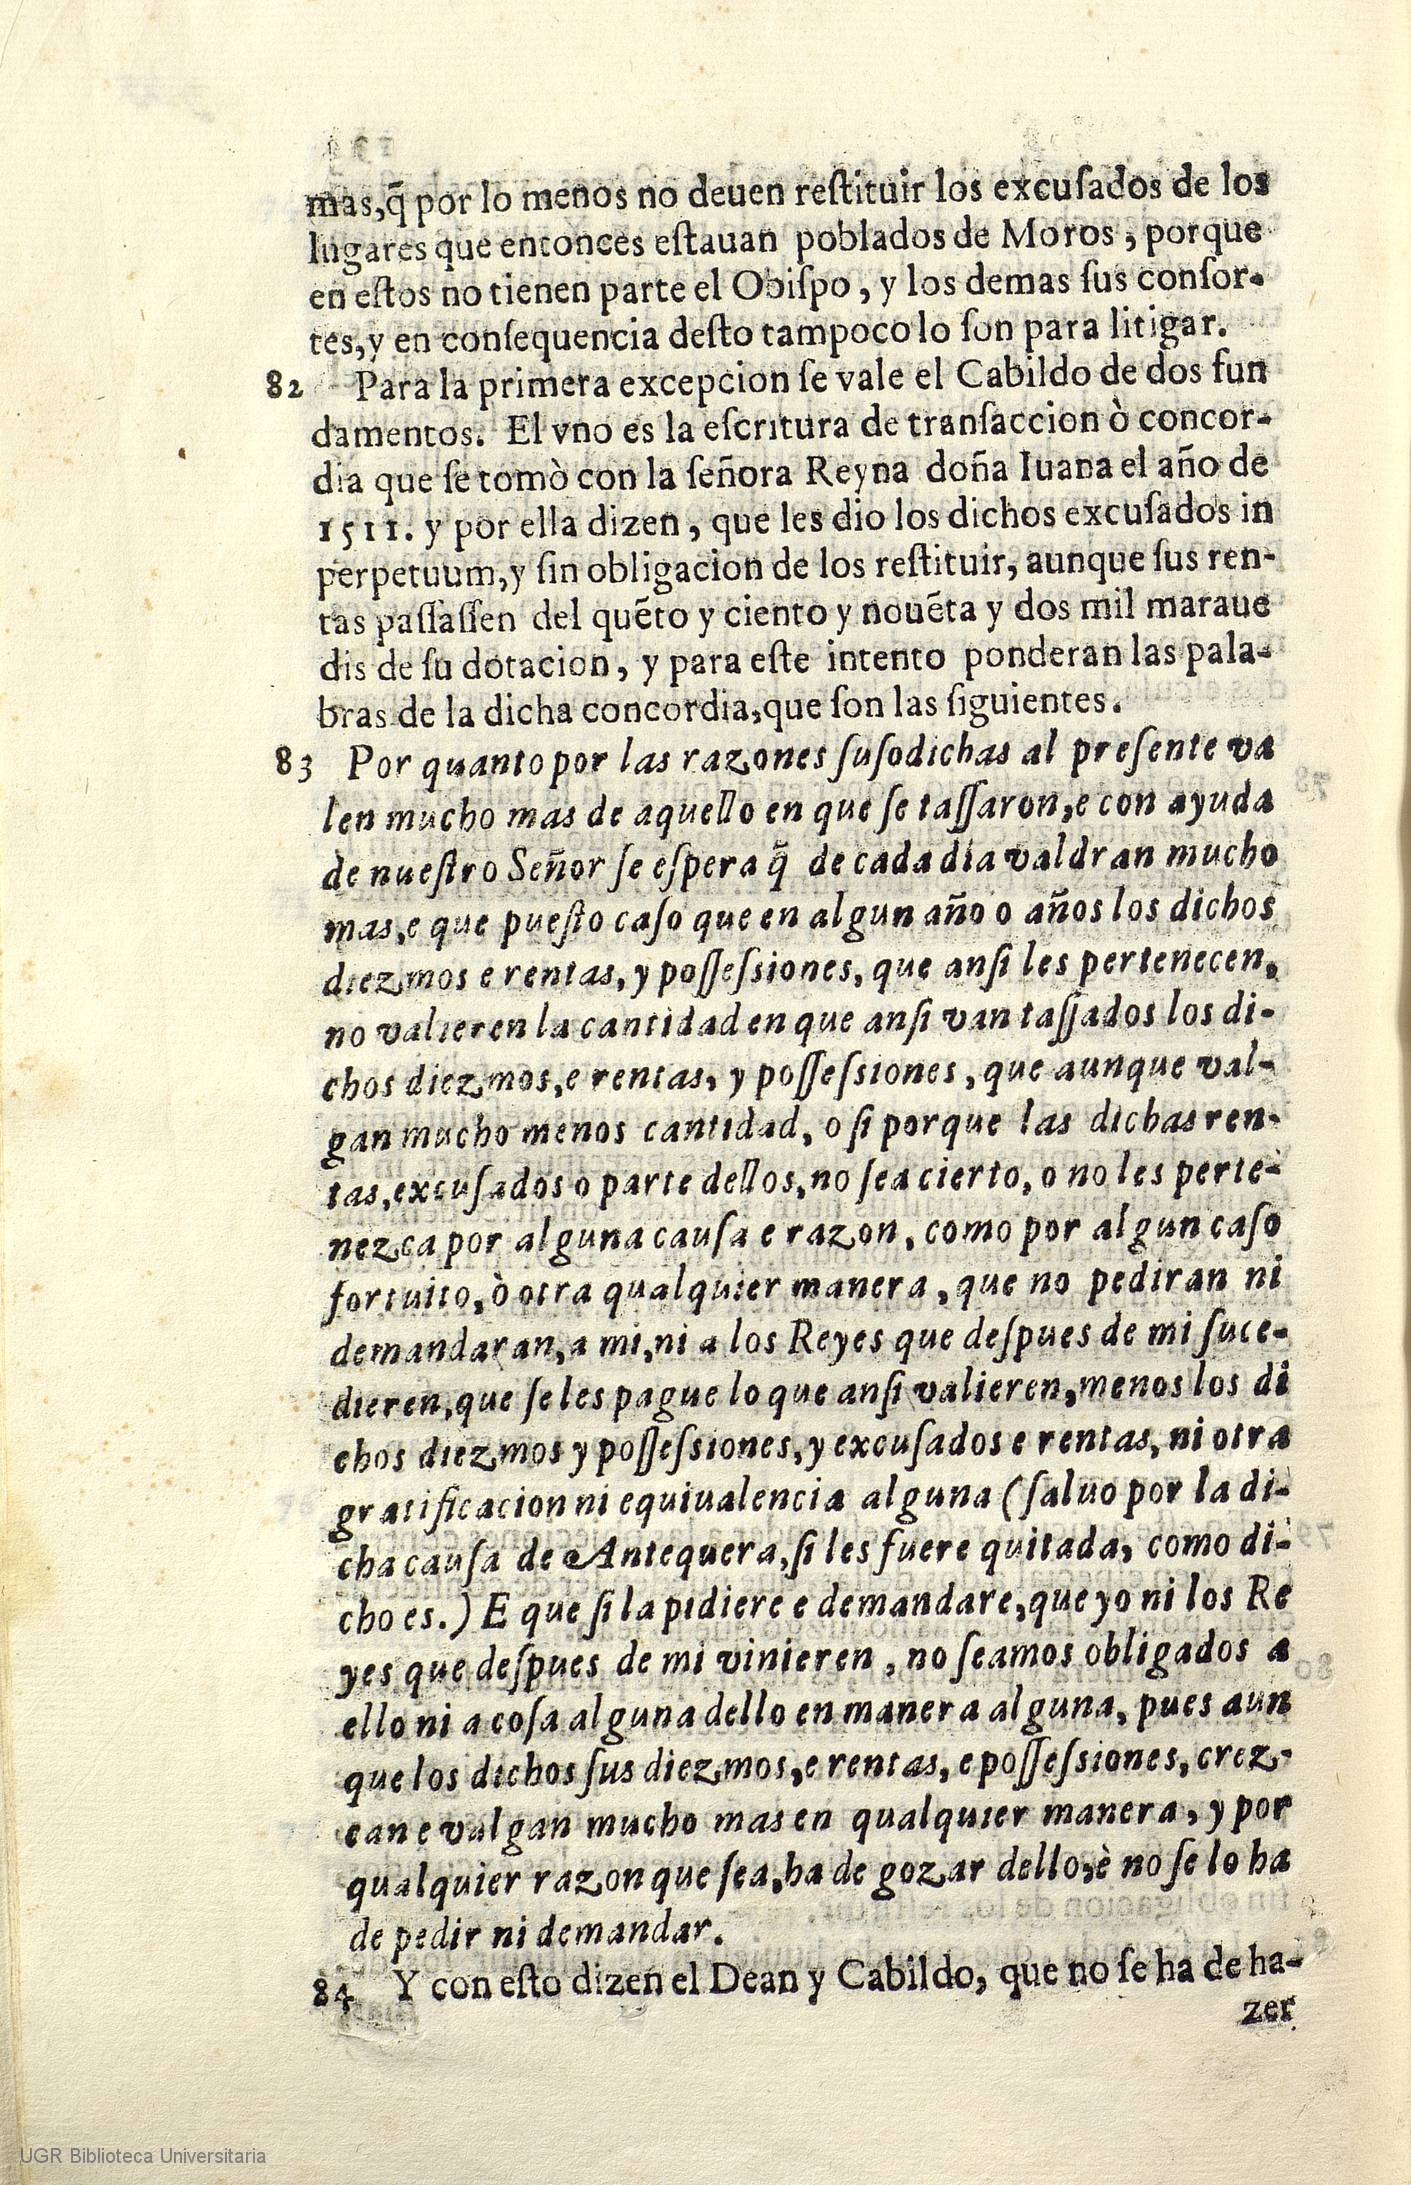 mas,q̃ por lo menos no deuen reſtituir los excuſados de los
lugares que entonces eſtauan poblados de Moros, porque
en eſtos no tienen parte el Obiſpo, y los demas ſus conſor-
tes,y en conſequencia deſto tampoco lo ſon para litigar.
82 Para la primera excepcion ſe vale el Cabildo de dos fun
damentos. El vno es la eſcritura de tranſaccion ò concor-
dia que ſe tomò con la ſeñora Reyna doña Iuana el año de
1511. y por ella dizen, que les dio los dichos excuſados in
perpetuum,y ſin obligacion de los reſtituir, aunque ſus ren-
tas paſſaſſen del quẽto y ciento y nouẽta y dos mil maraue
dis de ſu dotacion, y para eſte intento ponderan las pala-
bras de la dicha concordia,que ſon las ſiguientes.
83 Por quanto por las razones ſuſodichas al preſente va
len mucho mas de aquello en que ſe taſſaron,e con ayuda
de nueſtro Señor ſe eſpera q̃ de cada dia valdran mucho
mas,e que pueſto caſo que en algun año o años los dichos
diezmos e rentas, y poſſeſsiones, que anſi les pertenecen,
no valieren la cantidad en que anſi van taſſados los di-
chos diezmos,e rentas, y poſſeſsiones, que aunque val-
gan mucho menos cantidad, o ſi porque las dichas ren-
tas,excuſados o parte dellos,no ſea cierto, o no les perte-
nezca por alguna cauſa e razon, como por algun caſo
fortuito, ò otra qualquier manera, que no pediran ni
demandaran,a mi,ni a los Reyes que deſpues de mi ſuce-
dieren,que ſe les pague lo que anſi valieren,menos los di
chos diezmos y poſſeſsiones,y excuſados e rentas, ni otra
gratificacion ni equiualencia alguna (ſaluo por la di-
cha cauſa de Antequera,ſi les fuere quitada, como di-
cho es.) E que ſi la pidiere e demandare,que yo ni los Re
yes que deſpues de mi vinieren, no ſeamos obligados a
ello ni a coſa alguna dello en manera alguna, pues aun
que los dichos ſus diezmos,e rentas, e poſſeſsiones, crez-
can e valgan mucho mas en qualquier manera, y por
qualquier razon que ſea,ha de gozar dello,è no ſe lo ha
de pedir ni demandar.
84 Y con eſto dizen el Dean y Cabildo, que no ſe ha de ha-
zer
UGR Biblioteca Universitaria